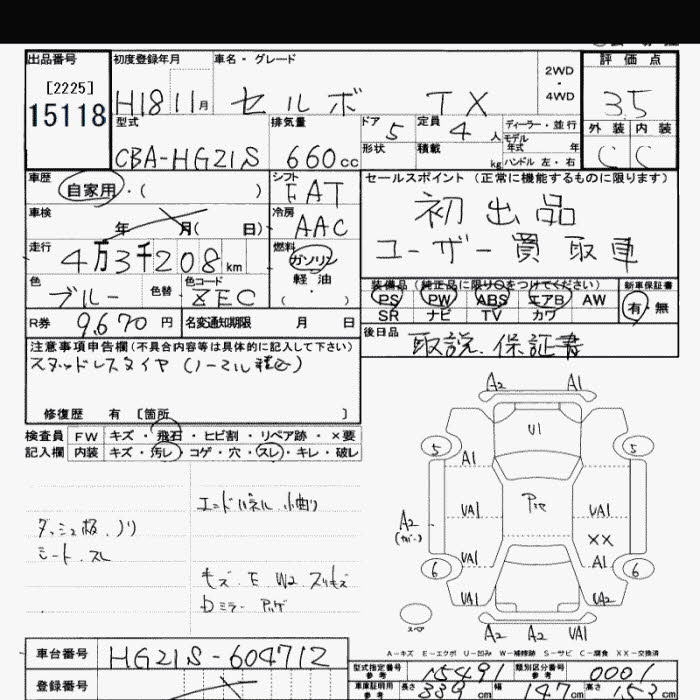 出品番号 初度登録年月 車名・グレード 評価点
[2225]
15118 H18 11月 セルボ TX 2WD・4WD 3.5
型式 排気量 ドア 5 定員 4人 ディーラー・並行 外装 内装
CBA-HG21S 660cc 形状 積載 kg モデル年式 年 ハンドル 左・右 C C
車歴 自家用・( ) シフト FAT セールスポイント(正常に機能するものに限ります)
車検 年 月( 日) 冷房 AAC 初出品
走行 4万3千208km 燃料 ガソリン 軽油 ・( ) ユーザー買取車
色 ブルー 色替 色コード ZEC 装備品(純正品に限り○をつけてください) 新車保証書
PS PW ABS エアB AW 有・無
R券 9,670円 名変通知期限 月 日 SR ナビ TV カワ
注意事項申告欄(不具合内容等は具体的に記入して下さい) 後日品 取説.保証書
スタッドレスタイヤ(ノーマル積込)
修復歴 有 [箇所 ]
検査員 FW キズ・飛石・ヒビ割・リペア跡・×要
記入欄 内装 キズ・汚レ・コゲ・穴・スレ・キレ・破レ
A2 A1
U1
5 5
A1
エンドパネル 小曲り
A2 UA1 UA1
ダッシュ板.ノリ
シート.スレ
XX
UA1 A1
6 6
UA1 UA2
キズ.E.W2.スリキズ
スペア
A2 A2 UA1
A-キズ E-エクボ U-凹み W-補修跡 S-サビ C-腐食 XX-交換済
車台番号 HG21S-604712
型式指定番号 参考 15491 類別区分番号 参考 0001
登録番号 車庫証明用 参考 長さ 339cm 幅 147cm 高さ 153cm